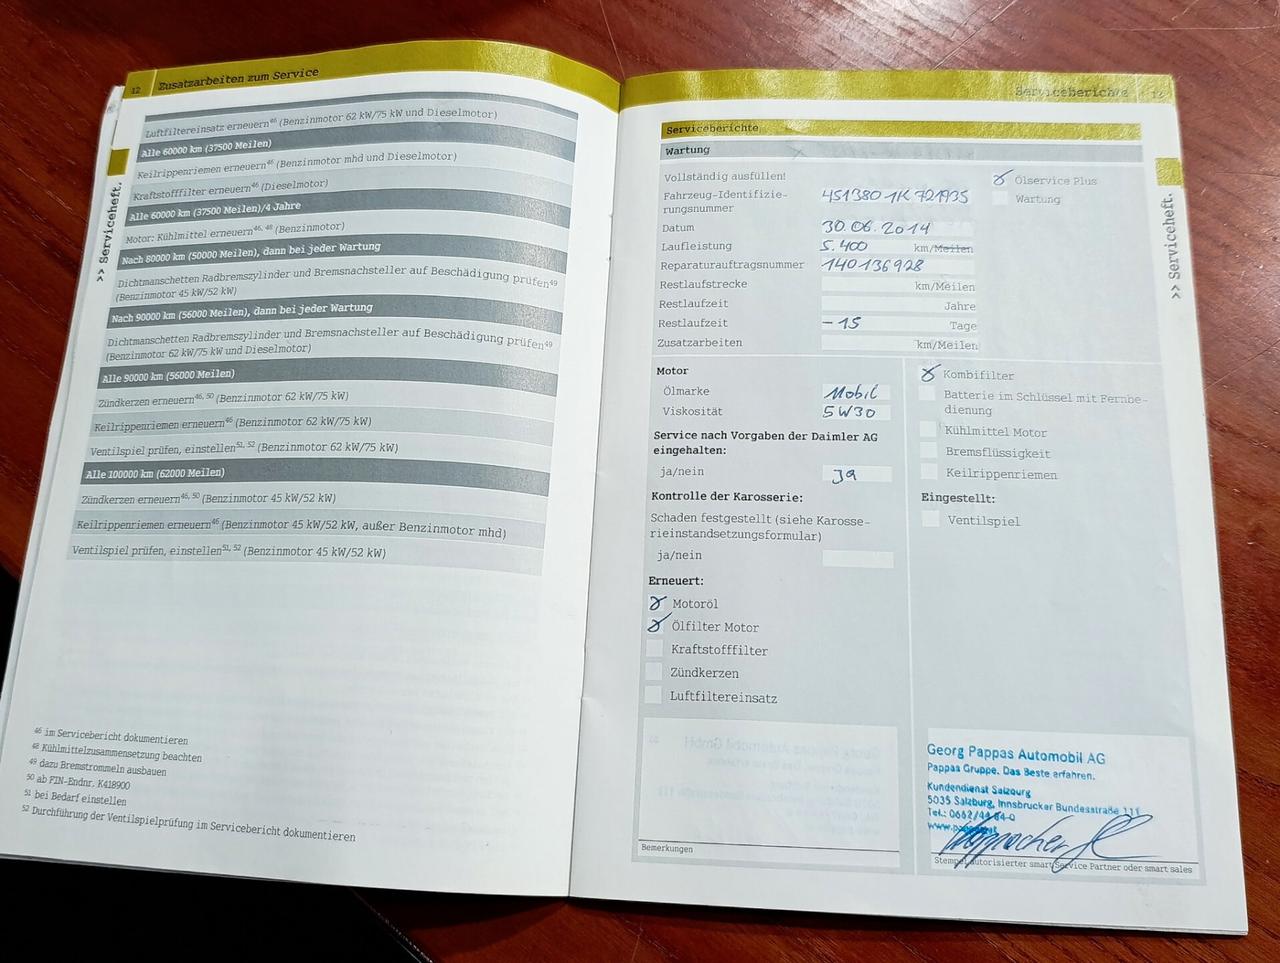 12 Zusatzarbeiten zum Service
>> Serviceheft.
Luftfiltereinsatz erneuern46 (Benzinmotor 62 kW/75 kW und Dieselmotor)
Alle 60000 km (37500 Meilen)
Keilrippenriemen erneuern46 (Benzinmotor mhd und Dieselmotor)
Kraftstofffilter erneuern46 (Dieselmotor)
Alle 60000 km (37500 Meilen)/4 Jahre
Motor: Kühlmittel erneuern46, 48 (Benzinmotor)
Nach 80000 km (50000 Meilen), dann bei jeder Wartung
Dichtmanschetten Radbremszylinder und Bremsnachsteller auf Beschädigung prüfen49
(Benzinmotor 45 kW/52 kW)
Nach 90000 km (56000 Meilen), dann bei jeder Wartung
Dichtmanschetten Radbremszylinder und Bremsnachsteller auf Beschädigung prüfen49
(Benzinmotor 62 kW/75 kW und Dieselmotor)
Alle 90000 km (56000 Meilen)
Zündkerzen erneuern46, 50 (Benzinmotor 62 kW/75 kW)
Keilrippenriemen erneuern46 (Benzinmotor 62 kW/75 kW)
Ventilspiel prüfen, einstellen51, 52 (Benzinmotor 62 kW/75 kW)
Alle 100000 km (62000 Meilen)
Zündkerzen erneuern46, 50 (Benzinmotor 45 kW/52 kW)
Keilrippenriemen erneuern46 (Benzinmotor 45 kW/52 kW, außer Benzinmotor mhd)
Ventilspiel prüfen, einstellen51, 52 (Benzinmotor 45 kW/52 kW)
46 im Servicebericht dokumentieren
48 Kühlmittelzusammensetzung beachten
49 dazu Bremstrommeln ausbauen
50 ab FIN-Endnr. K418900
51 bei Bedarf einstellen
52 Durchführung der Ventilspielprüfung im Servicebericht dokumentieren
Serviceberichte
>> Serviceheft.
Serviceberichte
Wartung
Vollständig ausfüllen!
Ölservice Plus
Wartung
Fahrzeug-Identifizie-
rungsnummer 451380 1K 721935
Datum 30.06.2014
Laufleistung 5.400 km/Meilen
Reparaturauftragsnummer 140136928
Restlaufstrecke km/Meilen
Restlaufzeit Jahre
Restlaufzeit -15 Tage
Zusatzarbeiten km/Meilen
Motor
Ölmarke Mobil
Viskosität 5W30
Service nach Vorgaben der Daimler AG
eingehalten:
ja/nein Ja
Kontrolle der Karosserie:
Schaden festgestellt (siehe Karosse-
rieinstandsetzungsformular)
ja/nein
Erneuert:
Motoröl
Ölfilter Motor
Kraftstofffilter
Zündkerzen
Luftfiltereinsatz
Kombifilter
Batterie im Schlüssel mit Fernbe-
dienung
Kühlmittel Motor
Bremsflüssigkeit
Keilrippenriemen
Eingestellt:
Ventilspiel
Bemerkungen
Georg Pappas Automobil AG
Pappas Gruppe. Das Beste erfahren.
Kundendienst Salzburg
5035 Salzburg, Innsbrucker Bundesstraße 111
Tel.: 0662/44 84-0
Stempel autorisierter smart Service Partner oder smart sales